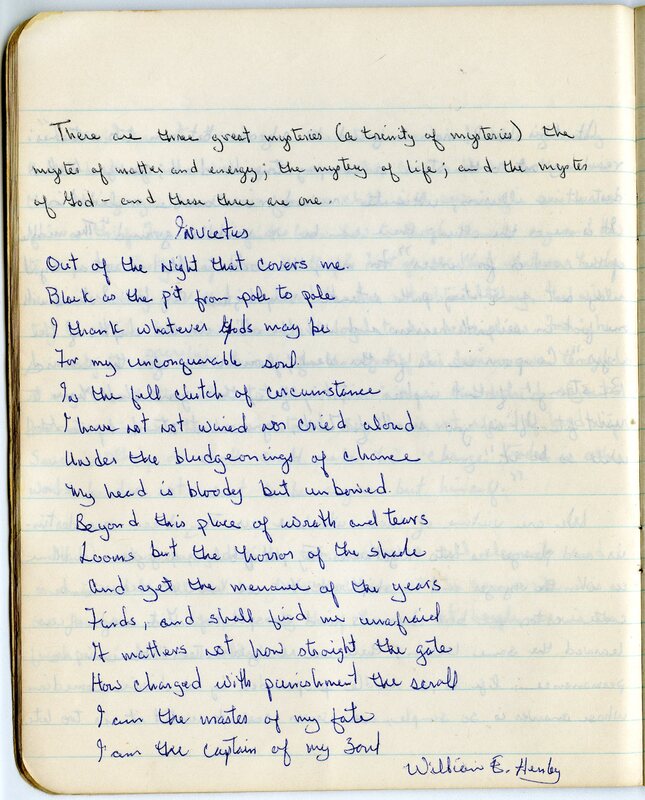 There are three great mysteries (a trinity of mysteries) the
mystes of matter and energy; the mystery of life; and the mystes
of God - and these three are one.
Invictus
Out of the Night that covers me.
Black as the pit from pole to pole
I thank whatever Gods may be
For my unconquarable soul
In the fell clutch of circumstance
I have not not winced nor cried aloud
Under the bludgeonings of chance
My head is bloody but unbowed.
Beyond this place of wrath and tears
Looms but the Horror of the shade
And yet the menance of the years
Finds, and shall find me unafraid
It matters not how straight the gate
How charged with punishment the scroll
I am the master of my fate
I am the captain of my Soul
William E. Henley